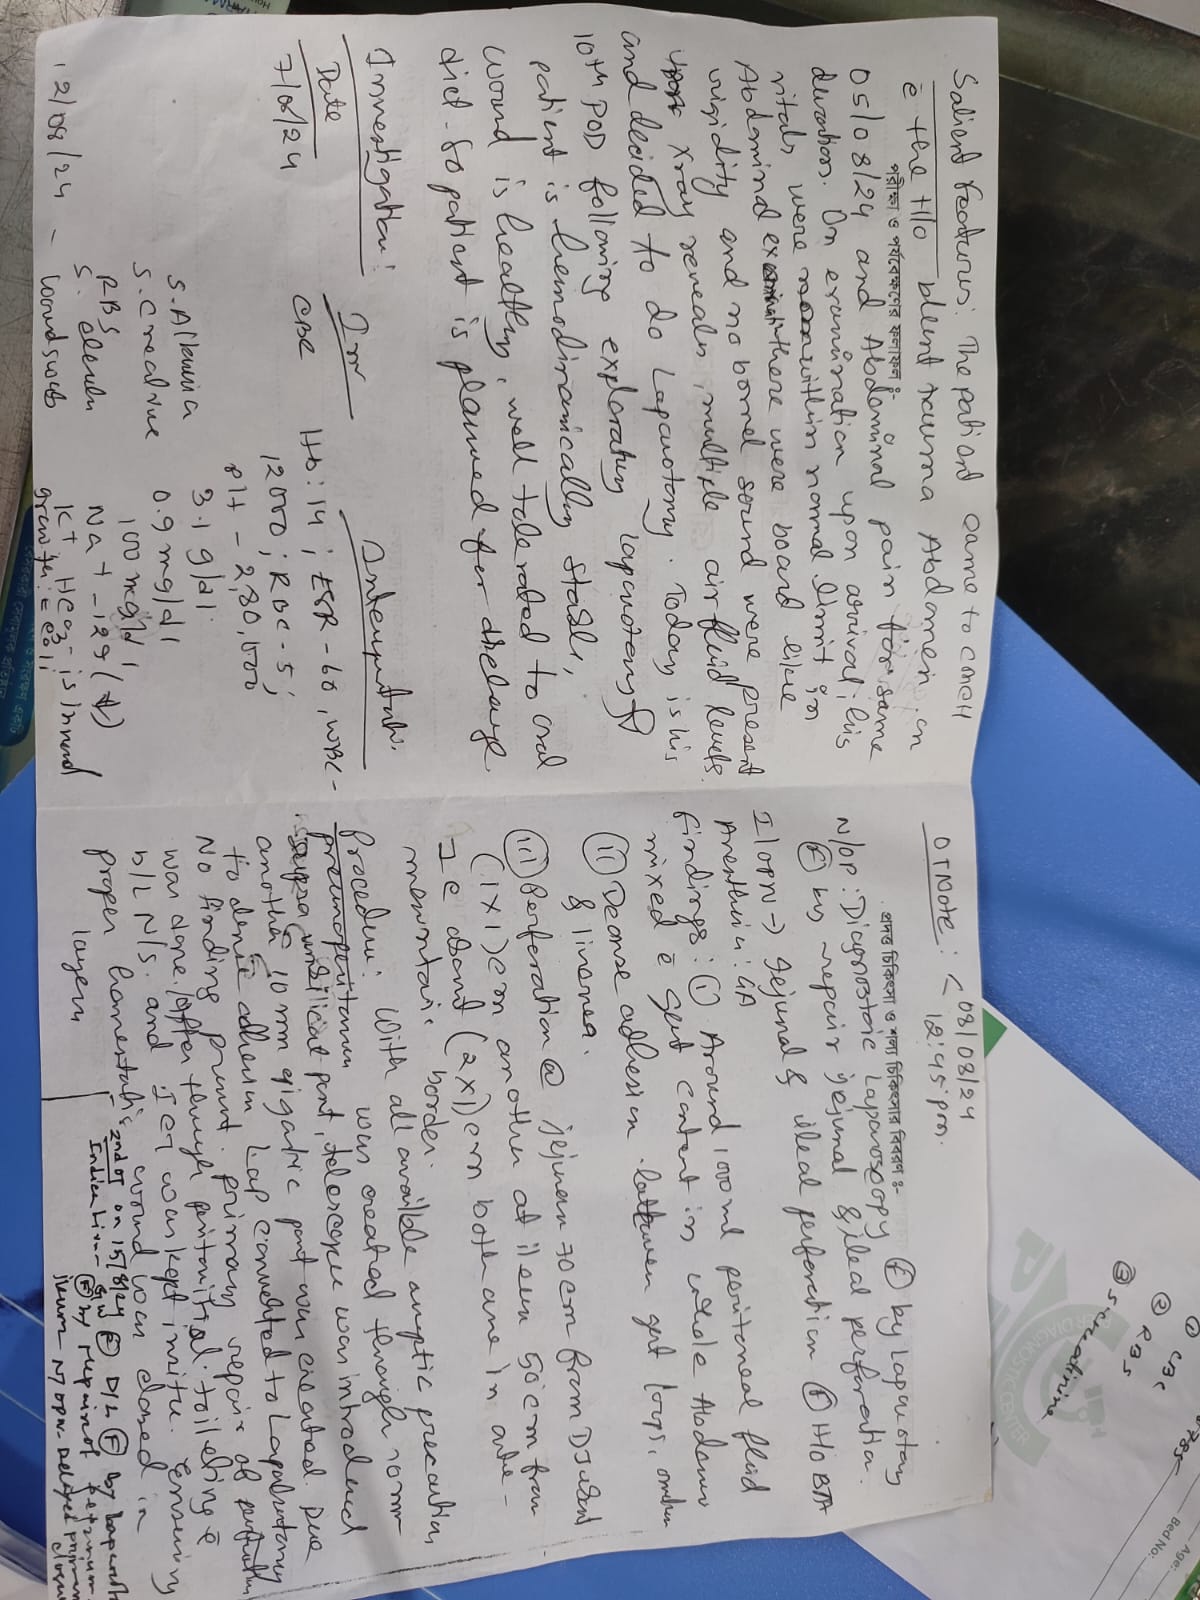 Salient Features: The patient came to CMCH
পরীক্ষা ও পর্যবেক্ষণের ফলাফল ঃ-
c̄ the H/O blunt trauma Abdomen on
05/08/24 and Abdominal pain for same
duration. On examination upon arrival, his
vitals were within normal limit in
Abdominal there were board like
rigidity and no bowel sound were present
Xray reveals, multiple air fluid levels.
and decided to do Laparotomy. Today is his
10th POD following exploratory laparotomy
patient is hemodinamically stable,
wound is healthy, well tolerated to oral
diet. So patient is planned for discharge
Investigation:
Date Inv Interpretation
7/08/24 CBC Hb: 14; ESR - 60, WBC -
12000; RBC - 5;
plt - 2,80,000
S. Albumin 3.1 g/dl
S. creatine 0.9 mg/dl
RBS 100 mg/dl
S. Na+ - 129 (↓)
K+ HCO3- is
12/08/24 - Wound swab growth: E coli
OT Note: < 08/08/24
12:45 pm.
প্রদত্ত চিকিৎসা ও শল্য চিকিৎসার বিবরণ ঃ-
N/OP: Diagnostic Laparoscopy (F) by Laparotomy
(F) by repair jejunal & ileal perforation.
I/OPN → Jejunal & ileal perforation H/O BTA
Anesthesia: GA
findings: (i) Around 1000 ml peritoneal fluid
mixed c̄ gut content in whole Abdomen
(ii) Dense adhesion between gut loops,
&
(iii) Perforation @ jejunum 70 cm from DJ
(1x1) cm another at ileum 50 cm from
about (2x1) cm both are in ante-
mesenteric border.
Procedure: With all available aseptic precaution,
pneumoperitonium was created through 10 mm
supra umbilical port, telescope was introduced
another 10 mm port was created. Due
to dense adhesion Lap converted to Laparotomy
No finding present. primary repair of perforation
was done. After through peritonial toileting c̄
N/S. and ICT was kept insitu. Ensuring
proper hemostasis wound was closed in
layers
2nd OT on 15/8/24
Indication -
by repair of
ileum N/OPN. Delayed primary
① CBC
② RBS
③ S. creatinine
DIAGNOSTIC CENTER
Age:
Bed No: